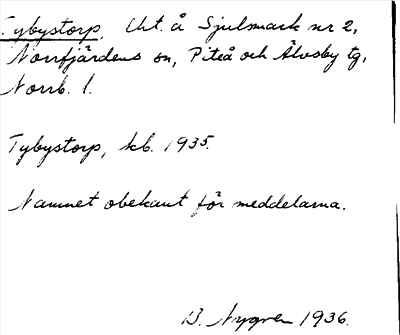 Tybystorp, Utt. å Sjulsmark nr 2,
Norrfjärdens sn, Piteå och Älvsby tg,
Norrb. l.
Tybystorp, kb. 1935.
Namnet obekant för meddelarna.
B. Nygren 1936.